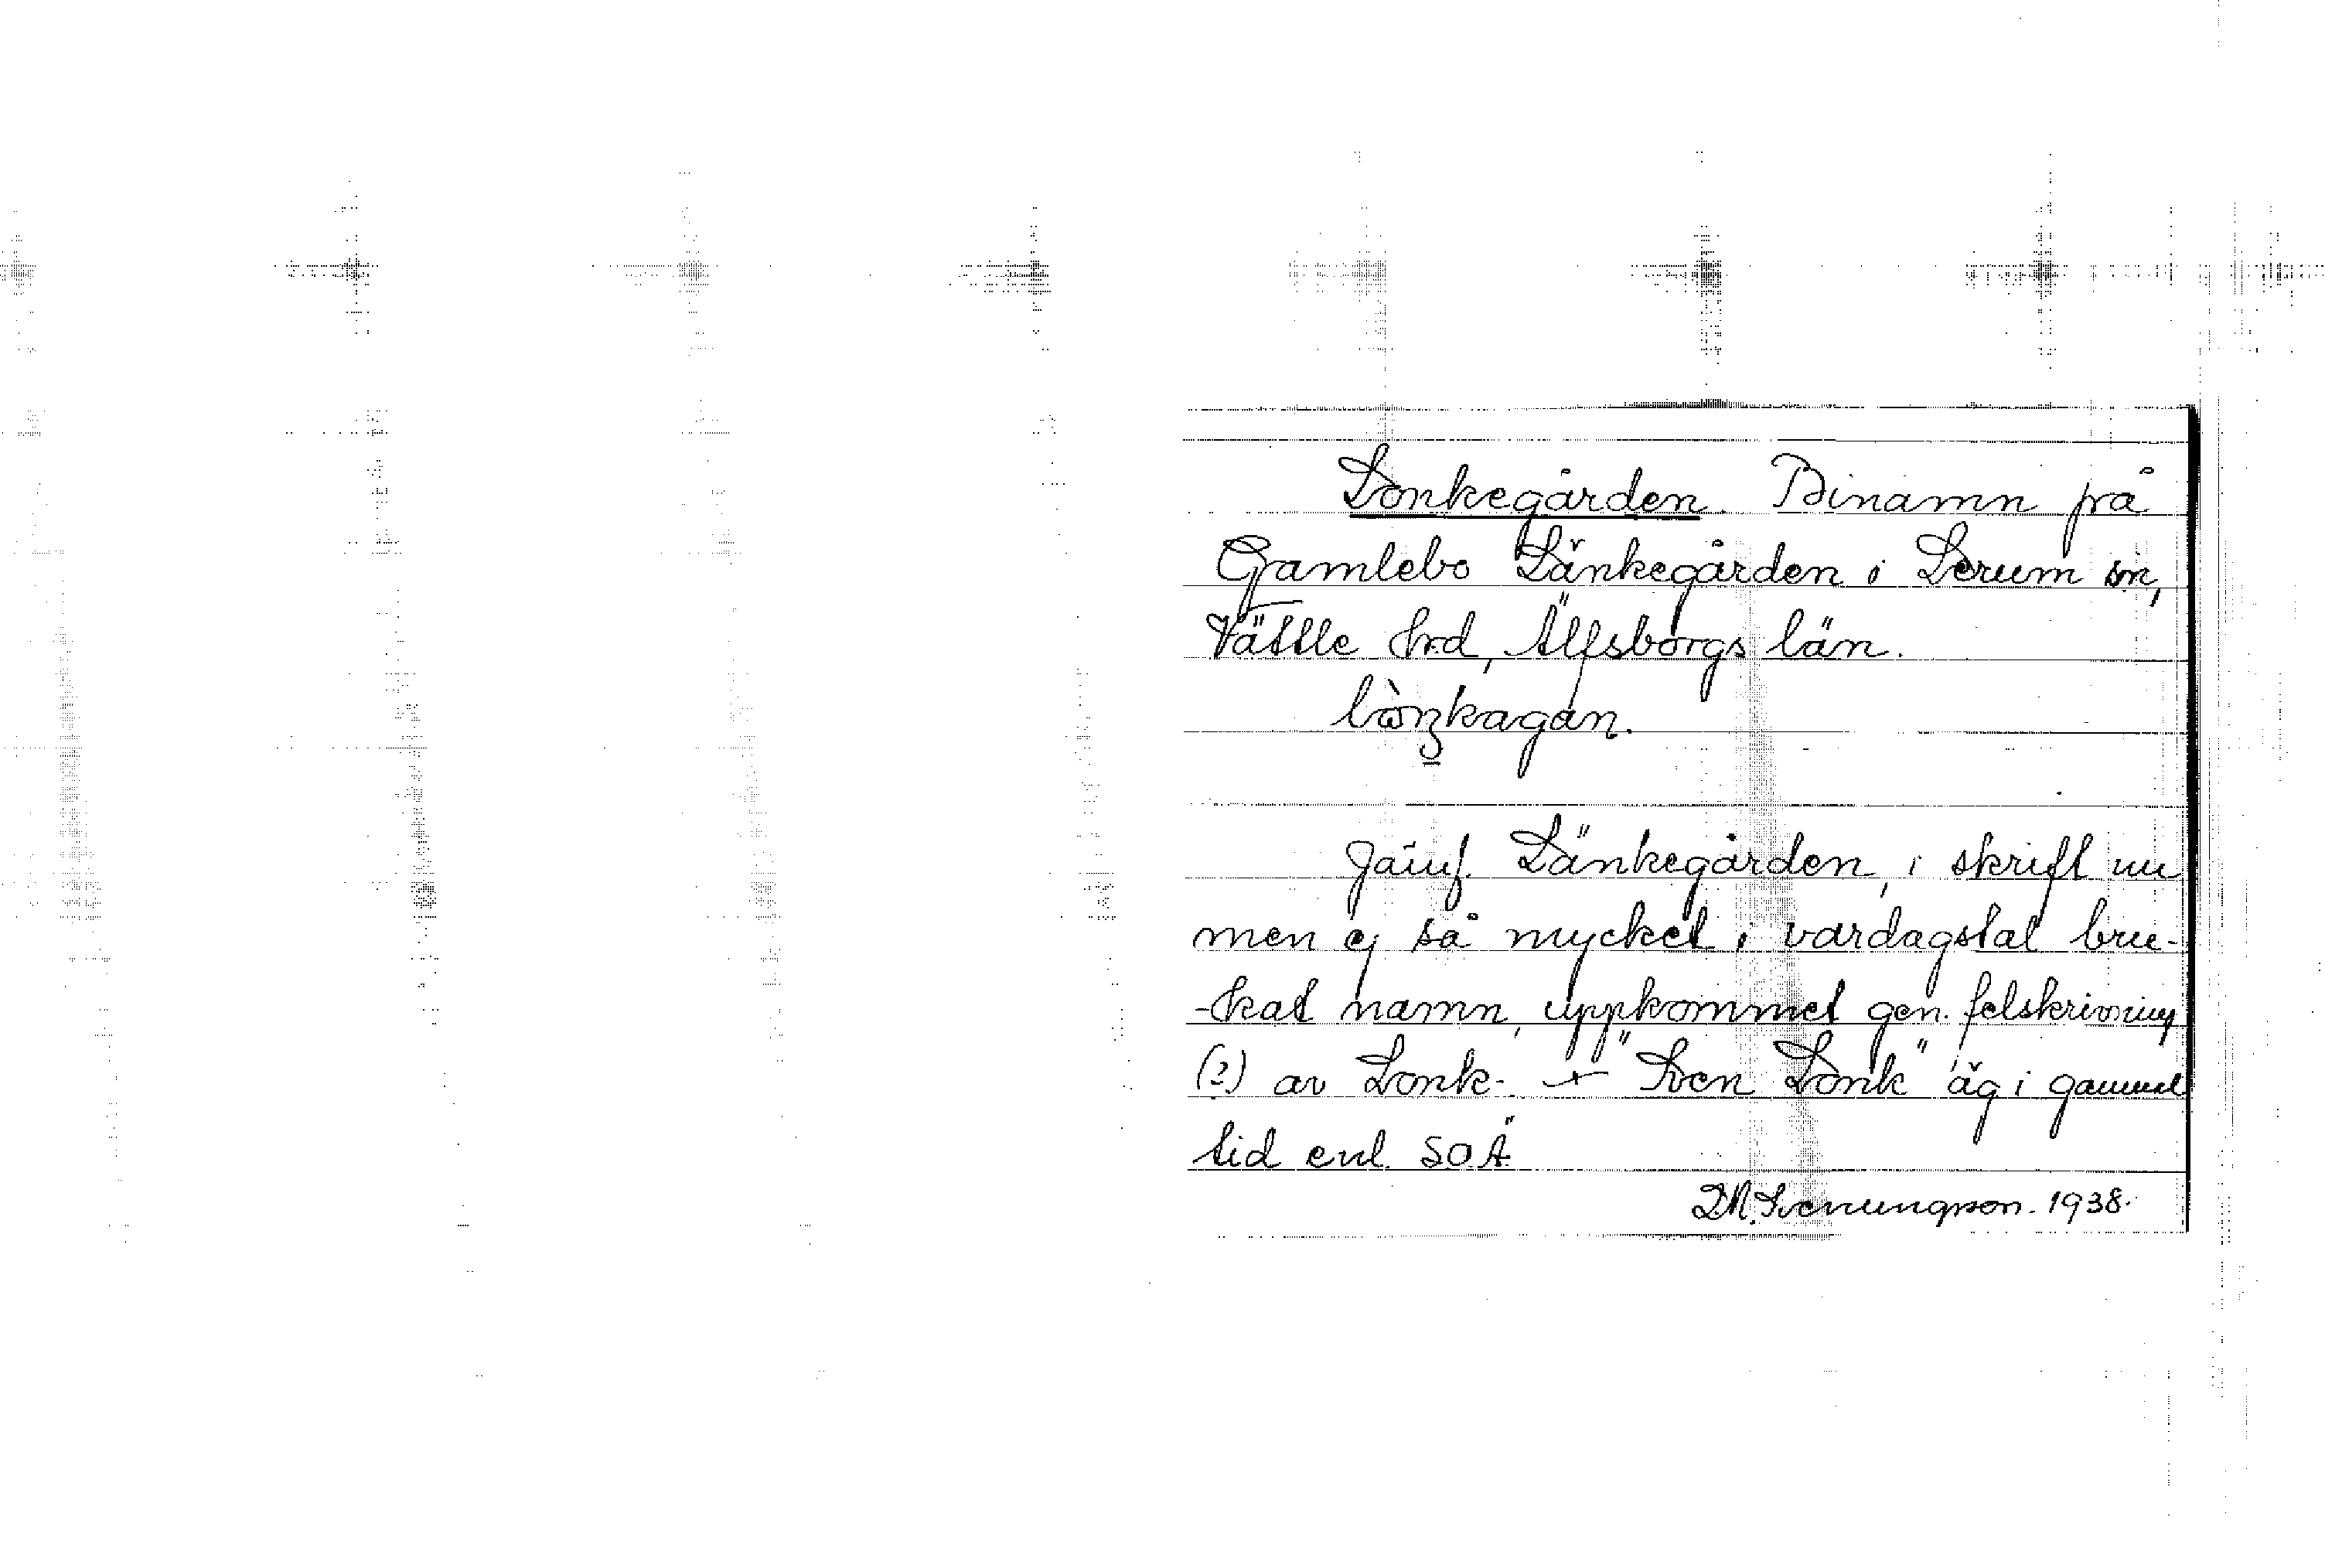 Lonkegården. Binamn på
Gamlebo Länkegården i Lerum sn,
Vättle hrd, Älfsborgs län.
Jämf. Länkegården, i skrift nu
men ej så mycket i vardagstal bru-
-kat namn, uppkommet gen. felskrivning
(?) av Lonk-. "Sven Lonk" äg i gammel
tid enl. SOÄ
Svenungsson. 1938.